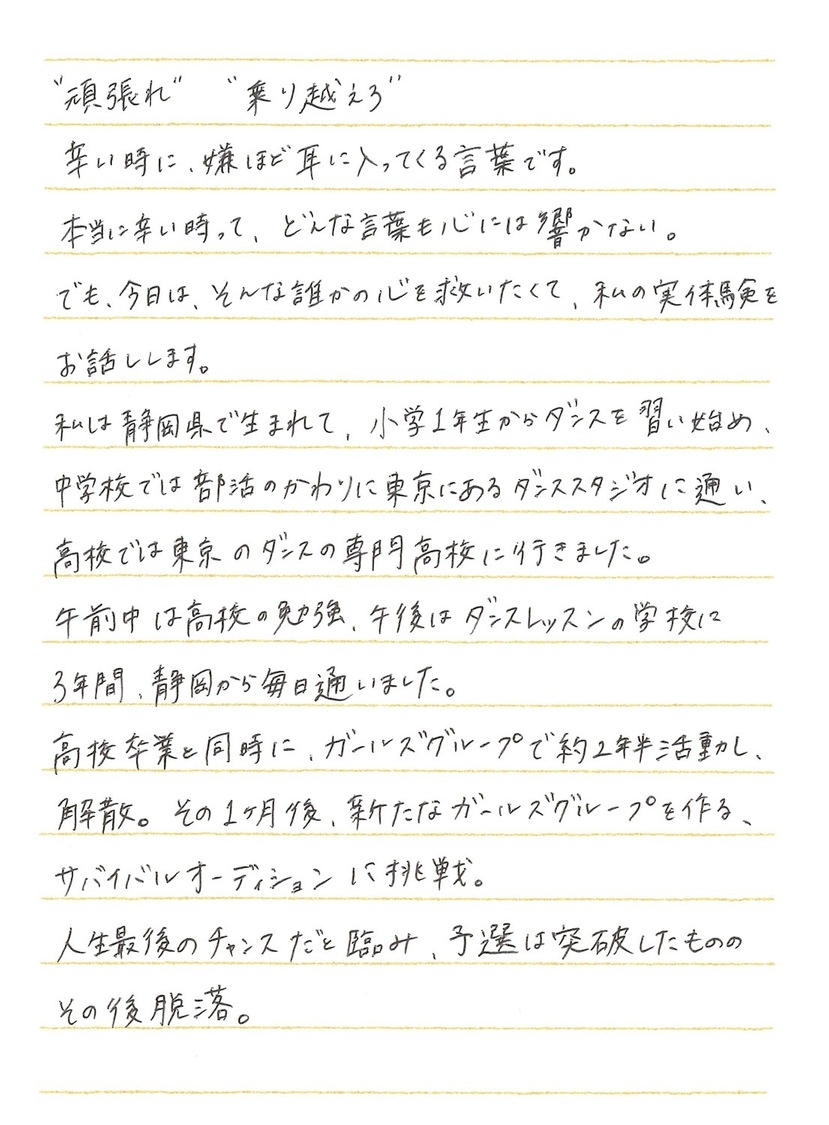 "頑張れ" "乗り越えろ"
辛い時に、嫌ほど耳に入ってくる言葉です。
本当に辛い時って、どんな言葉も心には響かない。
でも、今日は、そんな誰かの心を救いたくて、私の実体験を
お話しします。
私は静岡県で生まれて、小学1年生からダンスを習い始め、
中学校では部活のかわりに東京にあるダンススタジオに通い、
高校では東京のダンスの専門高校に行きました。
午前中は高校の勉強、午後はダンスレッスンの学校に
3年間、静岡から毎日通いました。
高校卒業と同時に、ガールズグループで約2年半活動し、
解散。その1ヶ月後、新たなガールズグループを作る、
サバイバルオーディションに挑戦。
人生最後のチャンスだと臨み、予選は突破したものの
その後脱落。